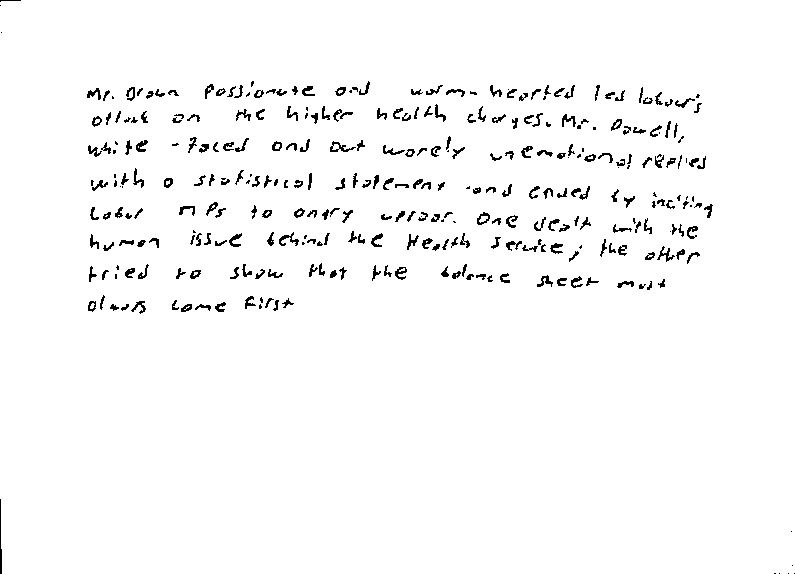 Mr. Brown Passionate and warm-hearted led labour's
attack on the higher health charges. Mr. Powell,
white-faced and out worely unemotional replied
with a statistical statement and ended by inciting
Labour MPs to angry uproar. One dealt with the
human issue behind the Health Service; the other
tried to show that the balance sheet must
always come first